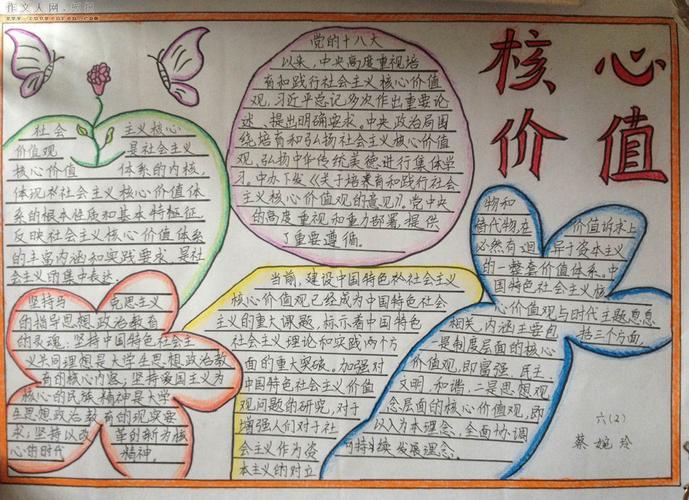 作文人网·实拍
www.zuowenren.com
核心
价值
党的十八大
以来，中央高度重视培
育和践行社会主义核心价值
观，习近平总记多次作出重要论
述、提出明确要求。中央政治局围
绕培育和弘扬社会主义核心价值
观，弘扬中华传统美德进行集体学
习。中办下发《关于培育和践行社会
主义核心价值观的意见》。党中央
的高度重视和重力部署，提供
了重要遵循。
社会 主义核心
价值观 是社会主义
核心价值 体系的内核，
体现社会主义核心价值体
系的根本性质和基本特征，
反映社会主义核心价值体系
的丰富内涵和实践要求，是社
会主义的集中表达。
坚持马 克思主义
的指导思想，政治教育
的灵魂；坚持中国特色社会主
义共同理想是大学生思想政治教
育的核心内容；坚持爱国主义为
核心的民族精神是大学
生思想政治教育的现实要
求；坚持以改 革创新为核
心的时代 精神。
当前，建设中国特色社会主义
核心价值观已经成为中国特色社会
主义的重大课题，标示着中国特色
社会主义理论和实践两个方
面的重大突破。加强对
中国特色社会主义价值
观问题的研究，对于
增强人们对于社
会主义作为资
本主义的对立
物和
替代物，在 价值诉求上
必然有迥 异于资本主义
的一整套价值体系。中
国特色社会主义核
心价值观与时代主题息息
相关，内涵主要包 括三个方面。
一是制度层面的核心
价值观，即富强、民主
文明、和谐。二是思想观
念层面的核心价值观，即
以人为本理念，全面协调
可持续 发展理念。
六（2）
蔡婉玲